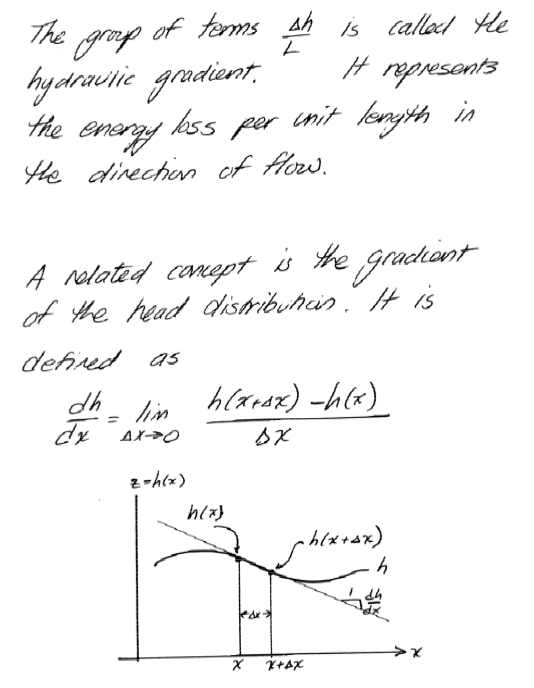 The group of terms Δh/L is called the
hydraulic gradient. It represents
the energy loss per unit length in
the direction of flow.
A related concept is the gradient
of the head distribution. It is
defined as
dh/dx = lim Δx→0 h(x+Δx) - h(x) / Δx
z=h(x)
h(x)
h(x+Δx)
h
1 dh/dx
Δx
x x+Δx x